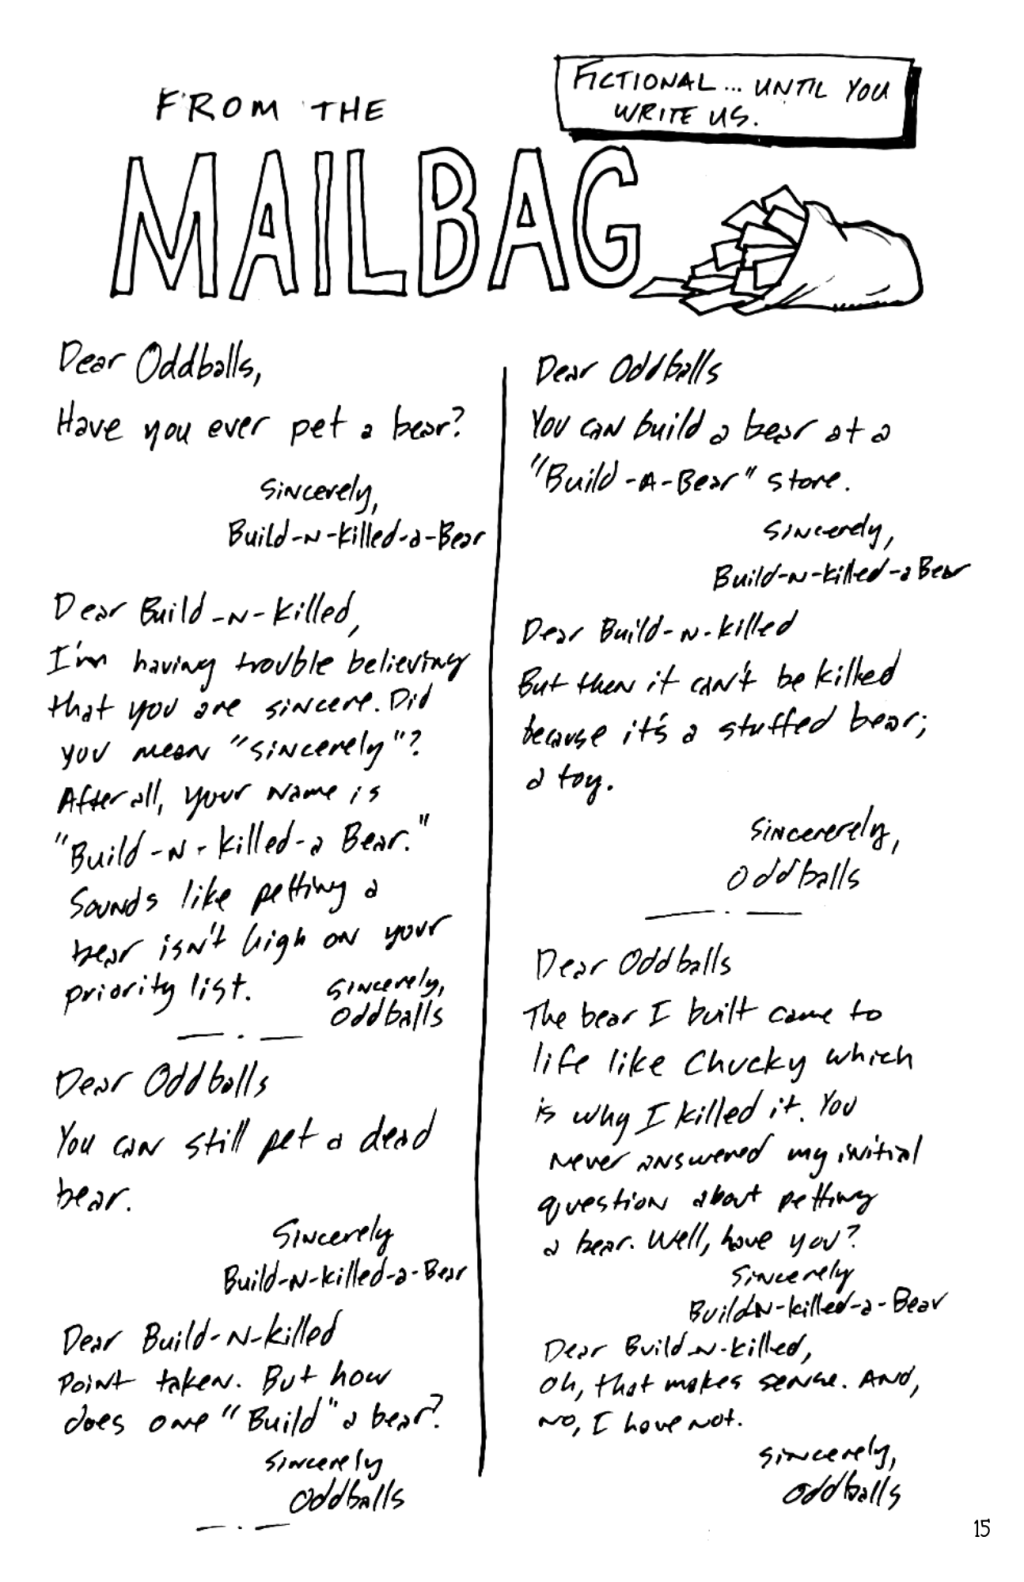 FROM THE
FICTIONAL... UNTIL YOU
WRITE US.
MAILBAG
Dear Oddballs,
Have you ever pet a bear?
Sincerely,
Build-N-Killed-a-Bear
Dear Build-N-Killed,
I'm having trouble believing
that you are sincere. Did
you mean "sincerely"?
After all, your name is
"Build-N-Killed-a Bear."
Sounds like petting a
bear isn't high on your
priority list.
Sincerely,
Oddballs
Dear Oddballs
You can still pet a dead
bear.
Sincerely
Build-N-Killed-a-Bear
Dear Build-N-Killed
Point taken. But how
does one "Build" a bear?
Sincerely
Oddballs
Dear Oddballs
You can build a bear at a
"Build-A-Bear" store.
Sincerely,
Build-N-Killed-a Bear
Dear Build-N-Killed
But then it can't be killed
because it's a stuffed bear;
a toy.
Sincererely,
Oddballs
Dear Oddballs
The bear I built came to
life like Chucky which
is why I killed it. You
never answered my initial
question about petting
a bear. Well, have you?
Sincerely
Build-N-Killed-a-Bear
Dear Build-N-Killed,
Oh, that makes sense. And,
no, I have not.
Sincerely,
Oddballs
15